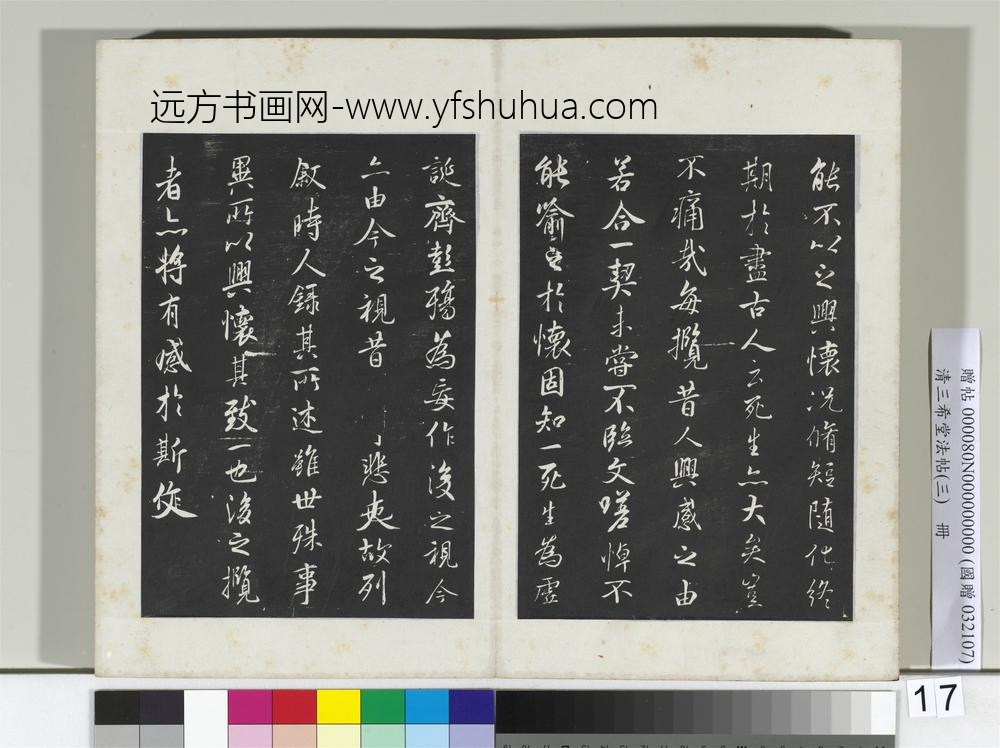 远方书画网-www.yfshuhua.com
能不以之興懷況脩短隨化終
期於盡古人云死生亦大矣豈
不痛哉每攬昔人興感之由
若合一契未嘗不臨文嗟悼不
能喻之於懷固知一死生為虛
誕齊彭殤為妄作後之視今
亦由今之視昔 悲夫故列
敘時人錄其所述雖世殊事
異所以興懷其致一也後之攬
者亦將有感於斯文
贈帖 000080N000000000 (國贈 032107)
清三希堂法帖(三) 冊
17